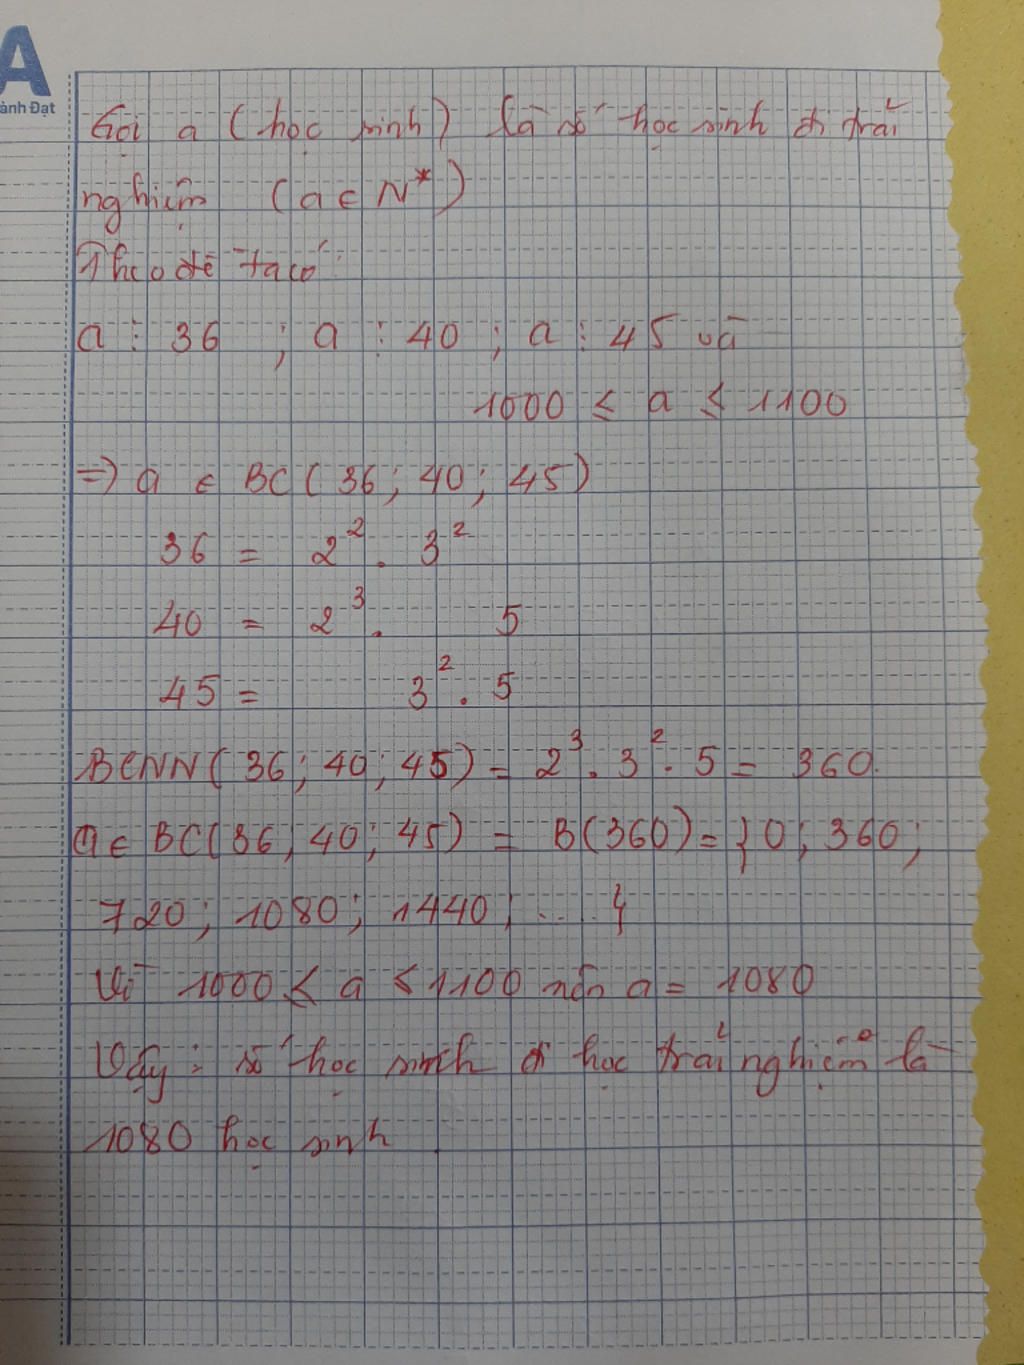 A
ành Đạt
Gọi a (học sinh) là số học sinh đi trải
nghiệm (a ∈ N*)
Theo đề ta có:
a ⋮ 36 ; a ⋮ 40 ; a ⋮ 45 và
1000 ≤ a ≤ 1100
=) a ∈ BC( 36 ; 40 ; 45)
36 = 2² . 3²
40 = 2³ . 5
45 = 3² . 5
BCNN( 36 ; 40 ; 45) = 2³ . 3² . 5 = 360.
a ∈ BC( 36 ; 40 ; 45) = B(360) = { 0 ; 360 ;
720 ; 1080 ; 1440 ; .... }
Vì 1000 ≤ a ≤ 1100 nên a = 1080
Vậy : số học sinh đi học trải nghiệm là
1080 học sinh.